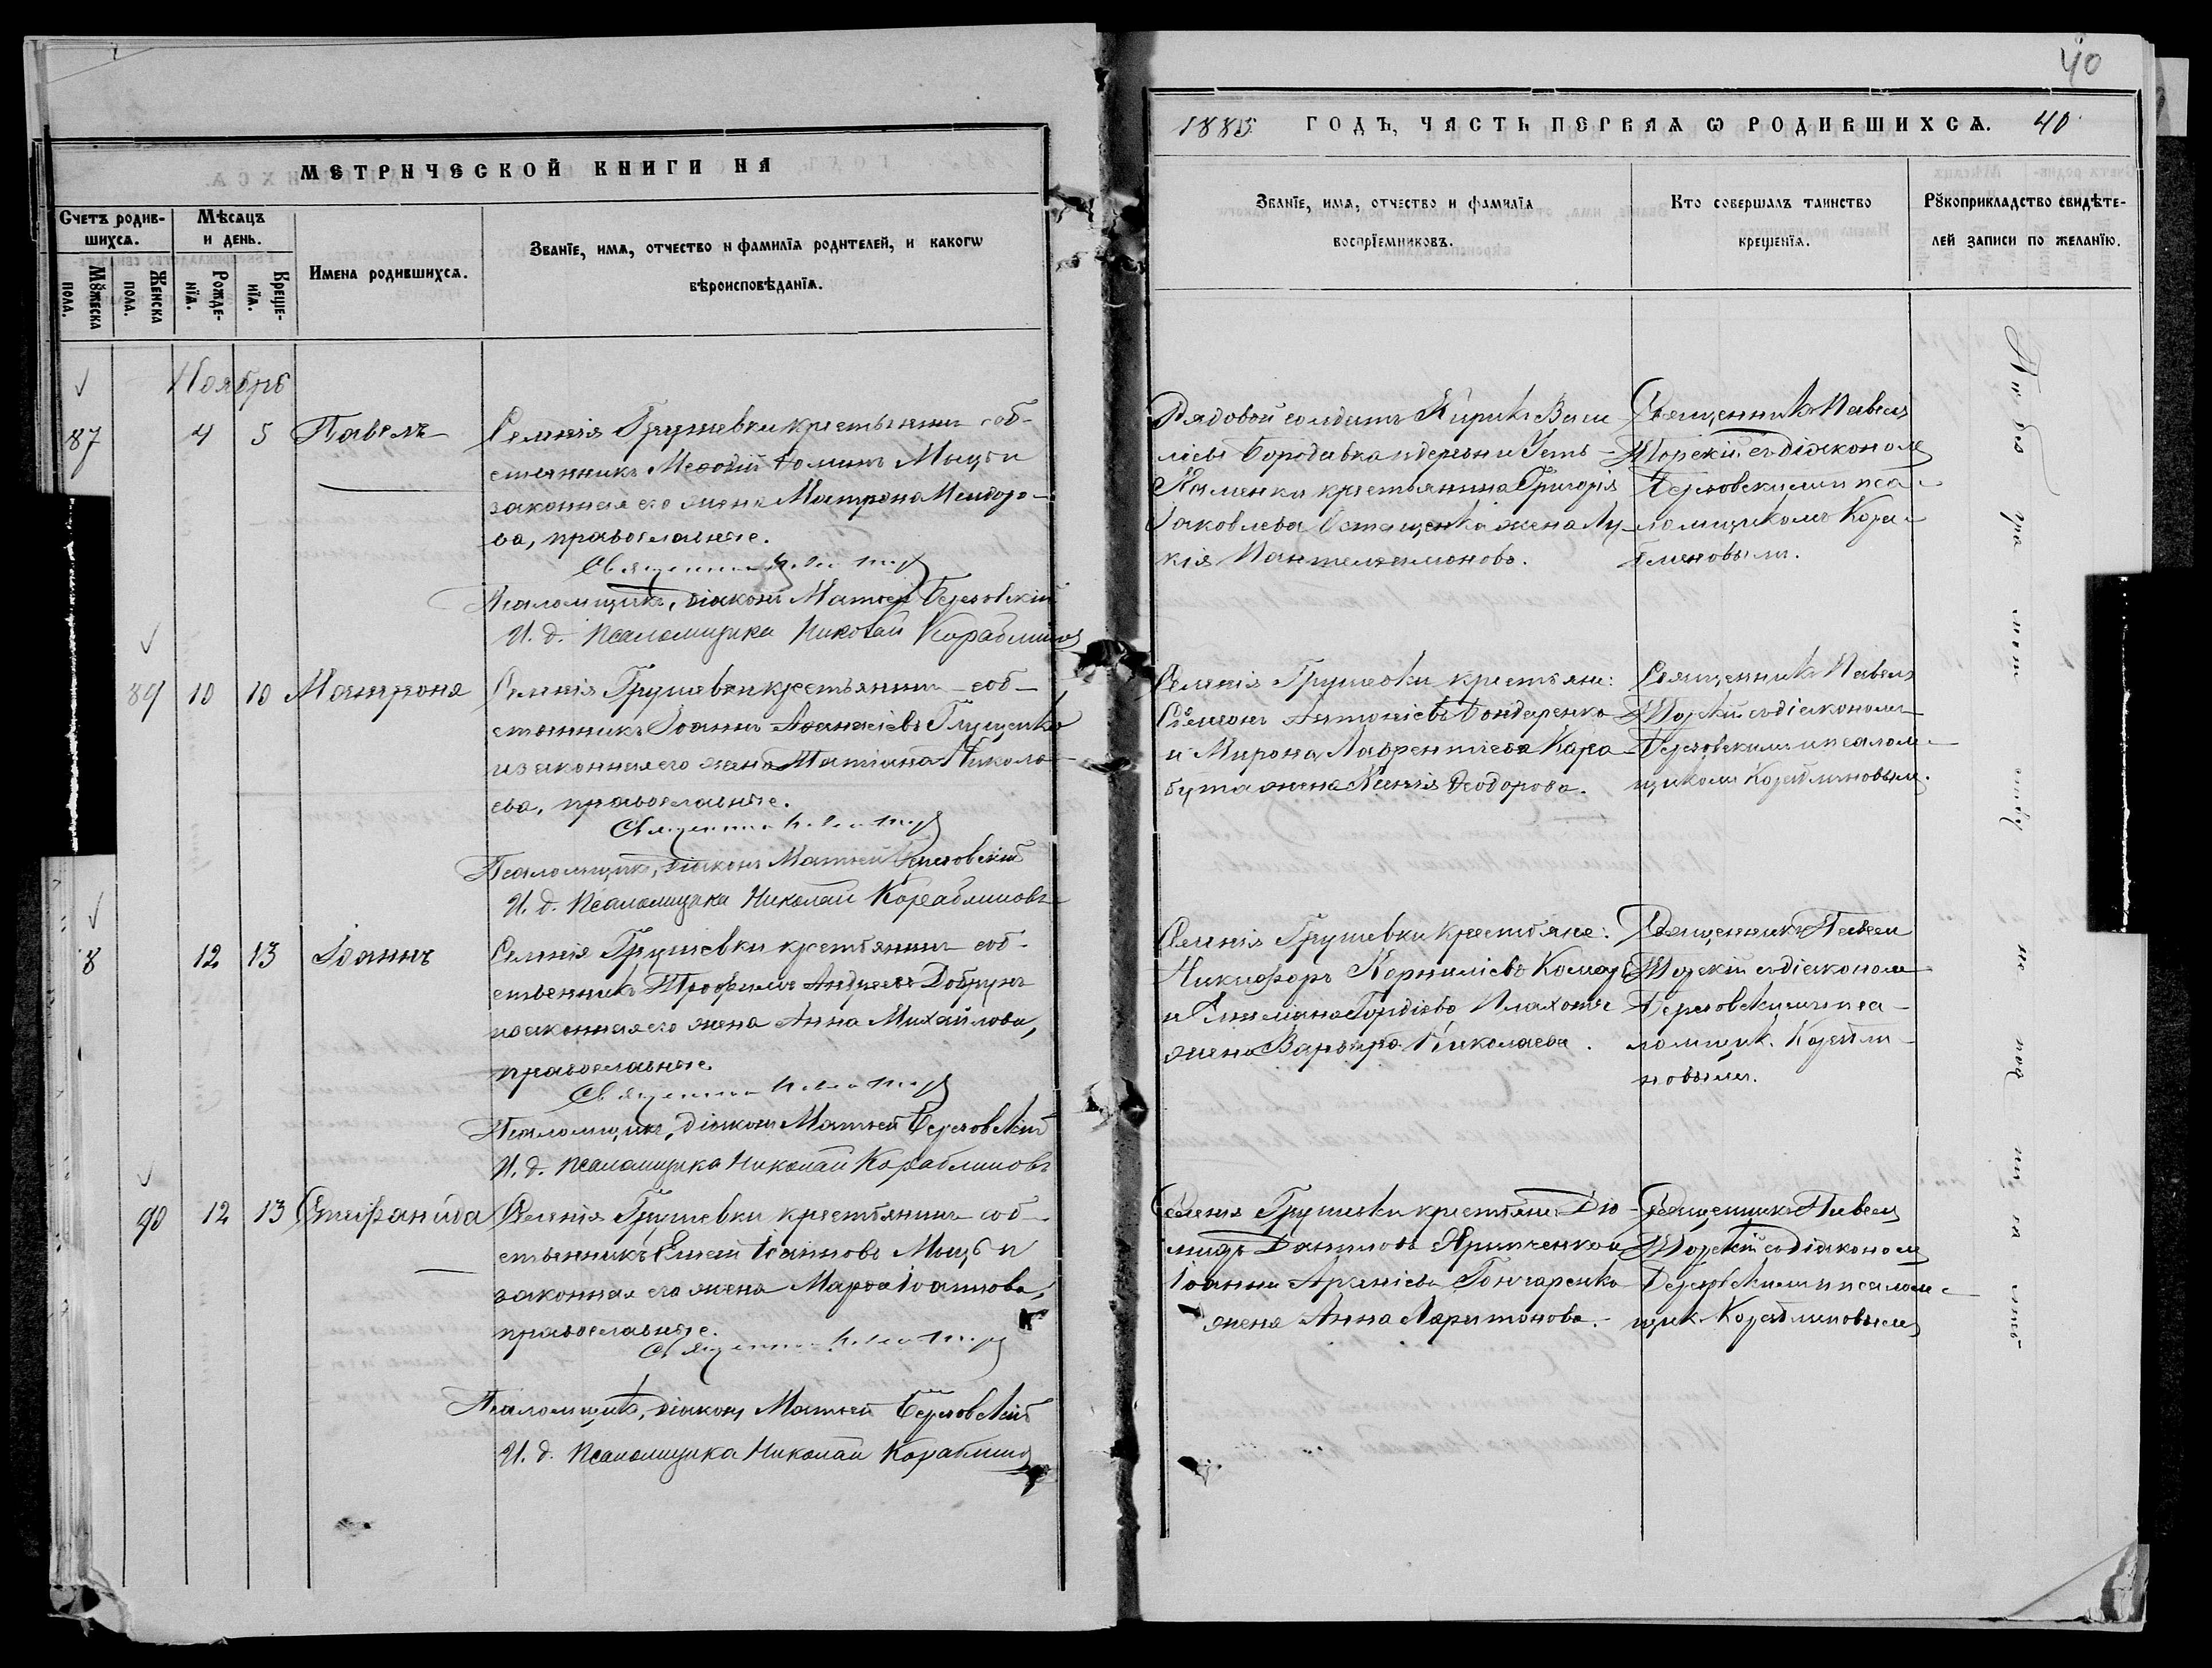 40
МЕТРИЧЕСКОЙ КНИГИ НА
1885 ГОДЪ, ЧАСТЬ ПЕРВАЯ Ѡ РОДИВШИХСѦ. 40
Счетъ родив-
шихсѧ.
Мѣсѧцъ
и день.
Мꙋжеска
пола.
Женска
пола.
Рожде-
нїѧ.
Креще-
нїѧ.
Имена родившихсѧ.
Званїе, имѧ, отчество и фамилїѧ родителей, и какогѡ
вѣроисповѣданїѧ.
Званїе, имѧ, отчество и фамилїѧ
воспрїемниковъ.
Кто совершалъ таинство
крещенїѧ.
Рꙋкоприкладство свидѣте-
лей записи по желанїю.
Ноябрь
87 4 5 Павелъ
Селенія Грушевки крестьянинъ соб-
ственникъ Меѳодій Фоминъ Мыцъ и
законная его жена Матрона Меѳодо-
ва, православные.
Псаломщикъ, діаконъ Матѳей Березовскій
И. д. Псаломщика Николай Кораблиновъ
Рядовой солдатъ Кирикъ Васи
ліевъ Бородавка и деревни Усть-
Каменки крестьянина Григорія
Іаковлева Остащенка жена Лу-
кія Пантелеимонова.
Священникъ Павелъ
Торскій съ діакономъ
Березовскимъ и пса-
ломщикомъ Кора-
блиновымъ.
89 10 10 Матрона
Селенія Грушевки крестьянинъ - соб-
ственникъ Іоаннъ Аѳанасіевъ Глущенко
и законная его жена Татіана Никола-
ева, православные.
Псаломщикъ, діаконъ Матѳей Березовскій
И. д. Псаломщика Николай Кораблиновъ
Селенія Грушевки крестьяне:
Симеонъ Антоніевъ Бондаренко
и Мирона Лаврентіева Кара
бута жена Ксенія Ѳеодорова.
Священникъ Павелъ
Торскій съ діакономъ
Березовскимъ и псалом-
щикомъ Кораблиновымъ.
8 12 13 Іоаннъ
Селенія Грушевки крестьянинъ соб-
ственникъ Трофимъ Андреевъ Добрунъ
и законная его жена Анна Михайлова,
православные.
Псаломщикъ, діаконъ Матѳей Березовскій
И. д. Псаломщика Николай Кораблиновъ
Селенія Грушевки крестьяне:
Никифоръ Корниліевъ Комаръ
и Гордіева
жена Варвара Николаева.
Священникъ Павелъ
Торскій съ діакономъ
Березовскимъ и пса-
ломщик. Корабли-
новымъ.
90 12 13 Стефанида
Селенія Грушевки крестьянинъ соб-
ственникъ Іоанновъ Мыцъ и
законная его жена Марѳа Іоаннова,
православные.
Псаломщикъ, діаконъ Матѳей Березовскій
И. д. Псаломщика Николай Кораблиновъ
Селенія Грушевки крестьяне: Діо-
мидъ Даниловъ и
Іоанна Гончаренка
жена Анна Харитонова.
Священникъ Павелъ
Торскій съ діакономъ
Березовскимъ и псалом-
щик. Кораблиновымъ